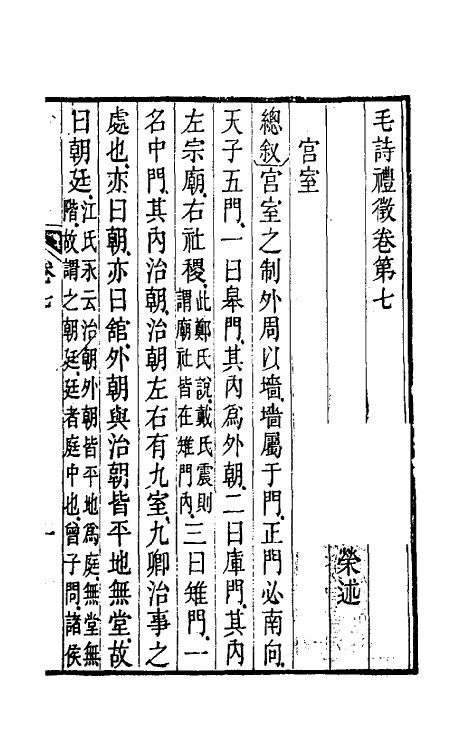 毛詩禮徵卷第七
榮述
宮室
總叙宮室之制外周以墻墻屬于門正門必南向
天子五門一曰皋門其內爲外朝二曰庫門其內
左宗廟右社稷此鄭氏說戴氏震則謂廟社皆在雉門內三曰雉門一
名中門其內治朝治朝左右有九室九卿治事之
處也亦曰朝亦曰舘外朝與治朝皆平地無堂故
曰朝廷江氏永云治朝外朝皆平地爲庭無堂無階故謂之朝廷廷者庭中也曾子問諸侯
卷七
一